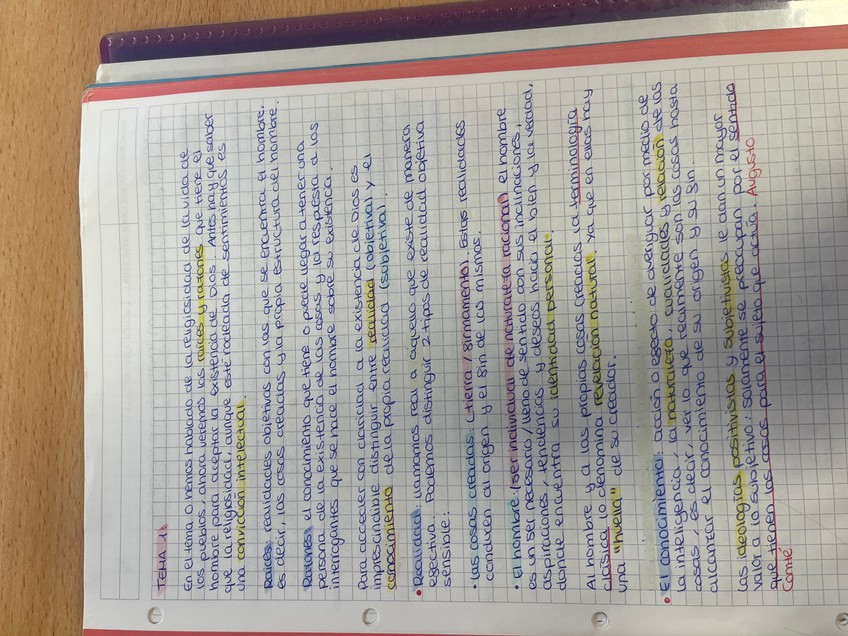 TEMA 1
En el tema 0 hemos hablado de la religiosidad de la vida de
los pueblos, ahora veremos las raíces y razones que tiene el
hombre para aceptar la existencia de Dios. Antes hay que saber
que la religiosidad, aunque esté rodeada de sentimientos es
una convicción intelectual.
Raíces: realidades objetivas con las que se encuentra el hombre,
es decir, las cosas creadas y la propia estructura del hombre.
Razones: el conocimiento que tiene o puede llegar a tener una
persona de la existencia de las cosas y la respuesta a los
interrogantes que se hace el hombre sobre su existencia.
Para acceder con claridad a la existencia de Dios es
imprescindible distinguir entre realidad (objetiva) y el
conocimiento de la propia realidad (subjetiva).
• Realidad: llamamos real a aquello que existe de manera
efectiva. Podemos distinguir 2 tipos de realidad objetiva
sensible:
• Las cosas creadas: (tierra / firmamento). Estas realidades
conducen al origen y el fin de las mismas.
• El hombre: (ser individual de naturaleza racional) el hombre
es un ser necesario / lleno de sentido con sus inclinaciones,
aspiraciones, tendencias y deseos hacia el bien y la verdad,
donde encuentra su identidad personal
Al hombre y a las propias cosas creadas la terminología
clásica lo denomina "revelación natural", ya que en ellos hay
una "huella" de su creador.
• El conocimiento: acción o efecto de averiguar por medio de
la inteligencia, la naturaleza, cualidades y relación de las
cosas, es decir, ver lo que realmente son las cosas hasta
alcanzar el conocimiento de su origen y su fin.
Las ideologías positivistas y subjetivistas le dan un mayor
valor a lo subjetivo: solamente se preocupan por el sentido
que tienen las cosas para el sujeto que actúa. Augusto
Comté